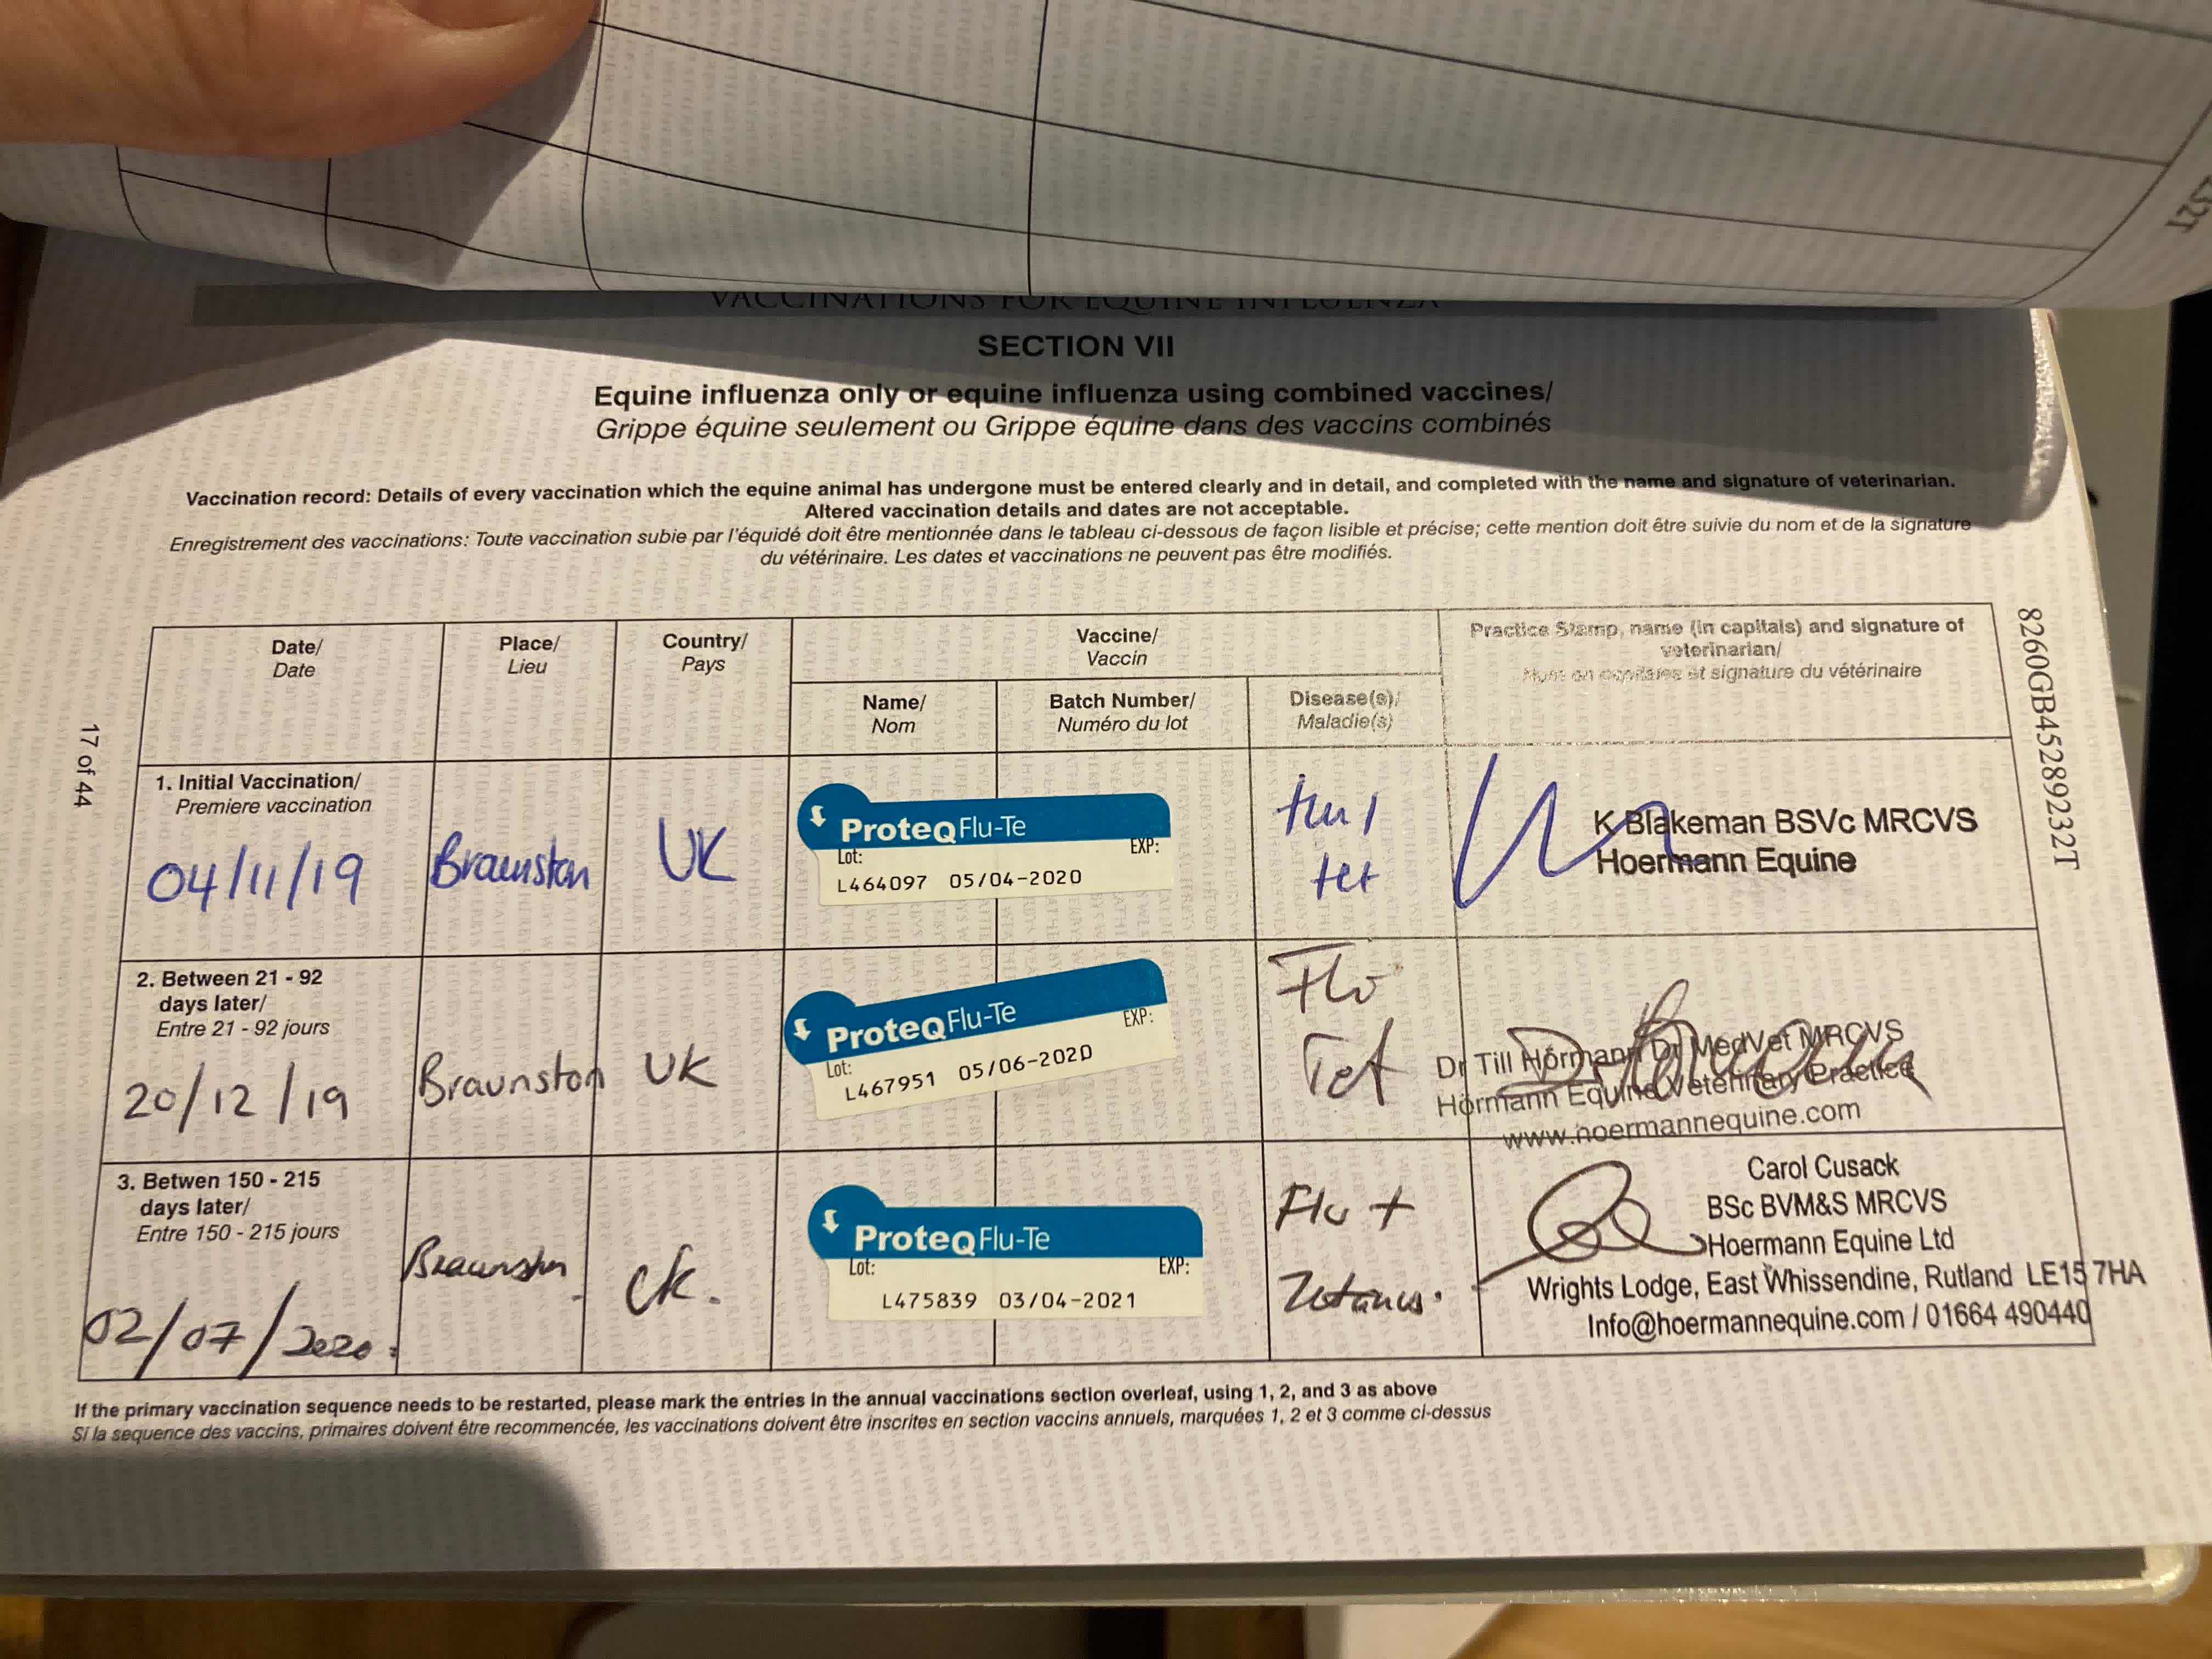 VACCINATIONS FOR EQUINE INFLUENZA
SECTION VII
Equine influenza only or equine influenza using combined vaccines/
Grippe équine seulement ou Grippe équine dans des vaccins combinés
Vaccination record: Details of every vaccination which the equine animal has undergone must be entered clearly and in detail, and completed with the name and signature of veterinarian.
Altered vaccination details and dates are not acceptable.
Enregistrement des vaccinations: Toute vaccination subie par l'équidé doit être mentionnée dans le tableau ci-dessous de façon lisible et précise; cette mention doit être suivie du nom et de la signature
du vétérinaire. Les dates et vaccinations ne peuvent pas être modifiés.
Date/
Date
Place/
Lieu
Country/
Pays
Vaccine/
Vaccin
Name/
Nom
Batch Number/
Numéro du lot
Disease(s)/
Maladie(s)
Practice Stamp, name (in capitals) and signature of
veterinarian/
Nom en capitales et signature du vétérinaire
1. Initial Vaccination/
Premiere vaccination
04/11/19
Braunston
UK
ProteqFlu-Te
Lot:
EXP:
L464097 05/04-2020
tet
K Blakeman BSVc MRCVS
Hoermann Equine
2. Between 21 - 92
days later/
Entre 21 - 92 jours
20/12/19
Braunston
UK
ProteqFlu-Te
Lot:
EXP:
L467951 05/06-2020
Flu
Tet
Dr Till Hörmann Dr MedVet MRCVS
Hörmann Equine Veterinary Practice
www.hoermannequine.com
3. Betwen 150 - 215
days later/
Entre 150 - 215 jours
02/07/2020.
Braunston
UK.
ProteqFlu-Te
Lot:
EXP:
L475839 03/04-2021
Flu +
Tetanus.
Carol Cusack
BSc BVM&S MRCVS
Hoermann Equine Ltd
Wrights Lodge, East Whissendine, Rutland LE15 7HA
Info@hoermannequine.com / 01664 490440
If the primary vaccination sequence needs to be restarted, please mark the entries in the annual vaccinations section overleaf, using 1, 2, and 3 as above
Si la sequence des vaccins, primaires doivent être recommencée, les vaccinations doivent être inscrites en section vaccins annuels, marquées 1, 2 et 3 comme ci-dessus
17 of 44
8260GB45289232T